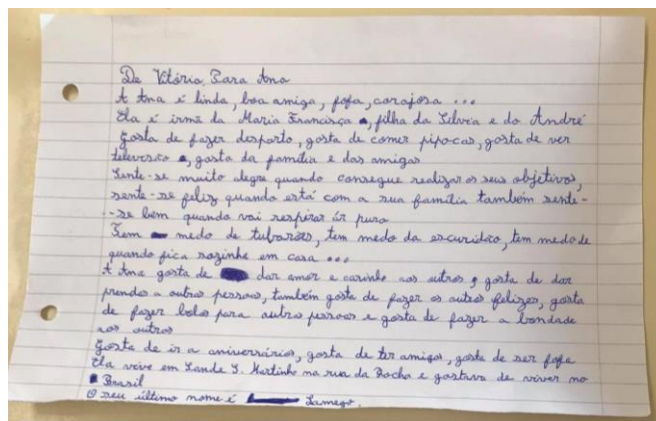 De Vitória Para Ana
A Ana é linda, boa amiga, fofa, corajosa ...
Ela é irmã da Maria Francisca, filha da Sílvia e do André
Gosta de fazer desporto, gosta de comer pipocas, gosta de ver
televisão, gosta da família e das amigas
Sente-se muito alegre quando consegue realizar os seus objetivos,
sente-se feliz quando está com a sua família também sente-
-se bem quando vai respirar ár puro
Tem medo de tubarões, tem medo da escuridão, tem medo de
quando fica sozinha em casa ...
A Ana gosta de dar amor e carinho aos outros, gosta de dar
prendas a outras pessoas, também gosta de fazer os outros felizes, gosta
de fazer bolos para outras pessoas e gosta de fazer a bondade
aos outros
Gosta de ir a aniversários, gosta de ter amigos, gosta de ser fofa
Ela vive em Sande S. Martinho na rua da Rocha e gostava de viver no
Brasil
O seu último nome é Lamego.